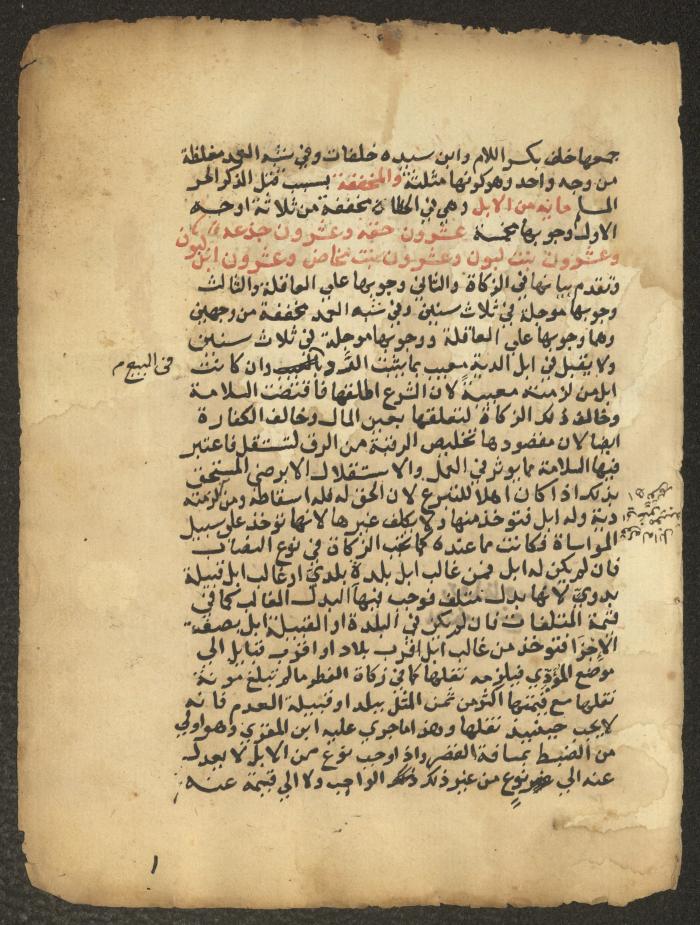 جمعها خلف بكسر اللام وابن سيده خلفات وفي شبه العمد مغلظة
من وجه واحد وهو كونها مثلثة والمخففة بسبب قتل الذكر الحر
المسلم ماية من الابل وهي في الخطا مخففة من ثلاثة اوجه
الاول وجوبها مخمسة عشرون حقة وعشرون جذعة
وعشرون بنت لبون وعشرون بنت مخاض وعشرون ابن لبون
وتقدم بيانها في الزكاة والثاني وجوبها علي العاقلة والثالث
وجوبها موجلة في ثلاث سنين وفي شبه العمد مخففة من وجهين
وهما وجوبها علي العاقلة ووجوبها موجلة في ثلاث سنين
ولا يقبل في ابل الدية معيب بما يثبت الرد وان كانت
في البيع م
ابل من لزمته معيبة لان الشرع اطلقها فاقتضت السلامة
وخالف ذلك الزكاة لتعلقها بعين المال وخالف الكفارة
ايضا لان مقصودها تخليص الرقبة من الرق لتستقل فاعتبر
فيها السلامة مما يوثر في العمل والاستقلال الا برضي المستحق
بذلك اذا كان اهلا للتبرع لان الحق له فله اسقاطه ومن لزمته
دية وله ابل فتوخذ منها ولا يكلف غيرها لانها توخذ علي سبيل
المواساة فكانت مما عنده كما تجب الزكاة في نوع النصاب
فان لم يكن له ابل فمن غالب ابل بلدة بلدي او غالب ابل قبيلة
بدوي لانها بدل متلف فوجب فيها البدل الغالب كما في
قيمة المتلفات فان لم يكن في البلدة او القبيلة ابل بصفة
الاجزا فتوخذ من غالب ابل اقرب بلاد او اقرب قبايل الي
موضع المؤدي فيلزمه نقلها كما في زكاة الفطر ما لم تبلغ مونة
نقلها مع قيمتها اكثر من ثمن المثل ببلد او قبيلة العدم فانه
لا يجب حينيذ نقلها وهذا ما جري عليه ابن المقري وهو اولي
من الضبط بمسافة القصر واذا وجب نوع من الابل لا يعدل
عنه الي نوع من غير ذلك الواجب ولا الي قيمة عنه
١